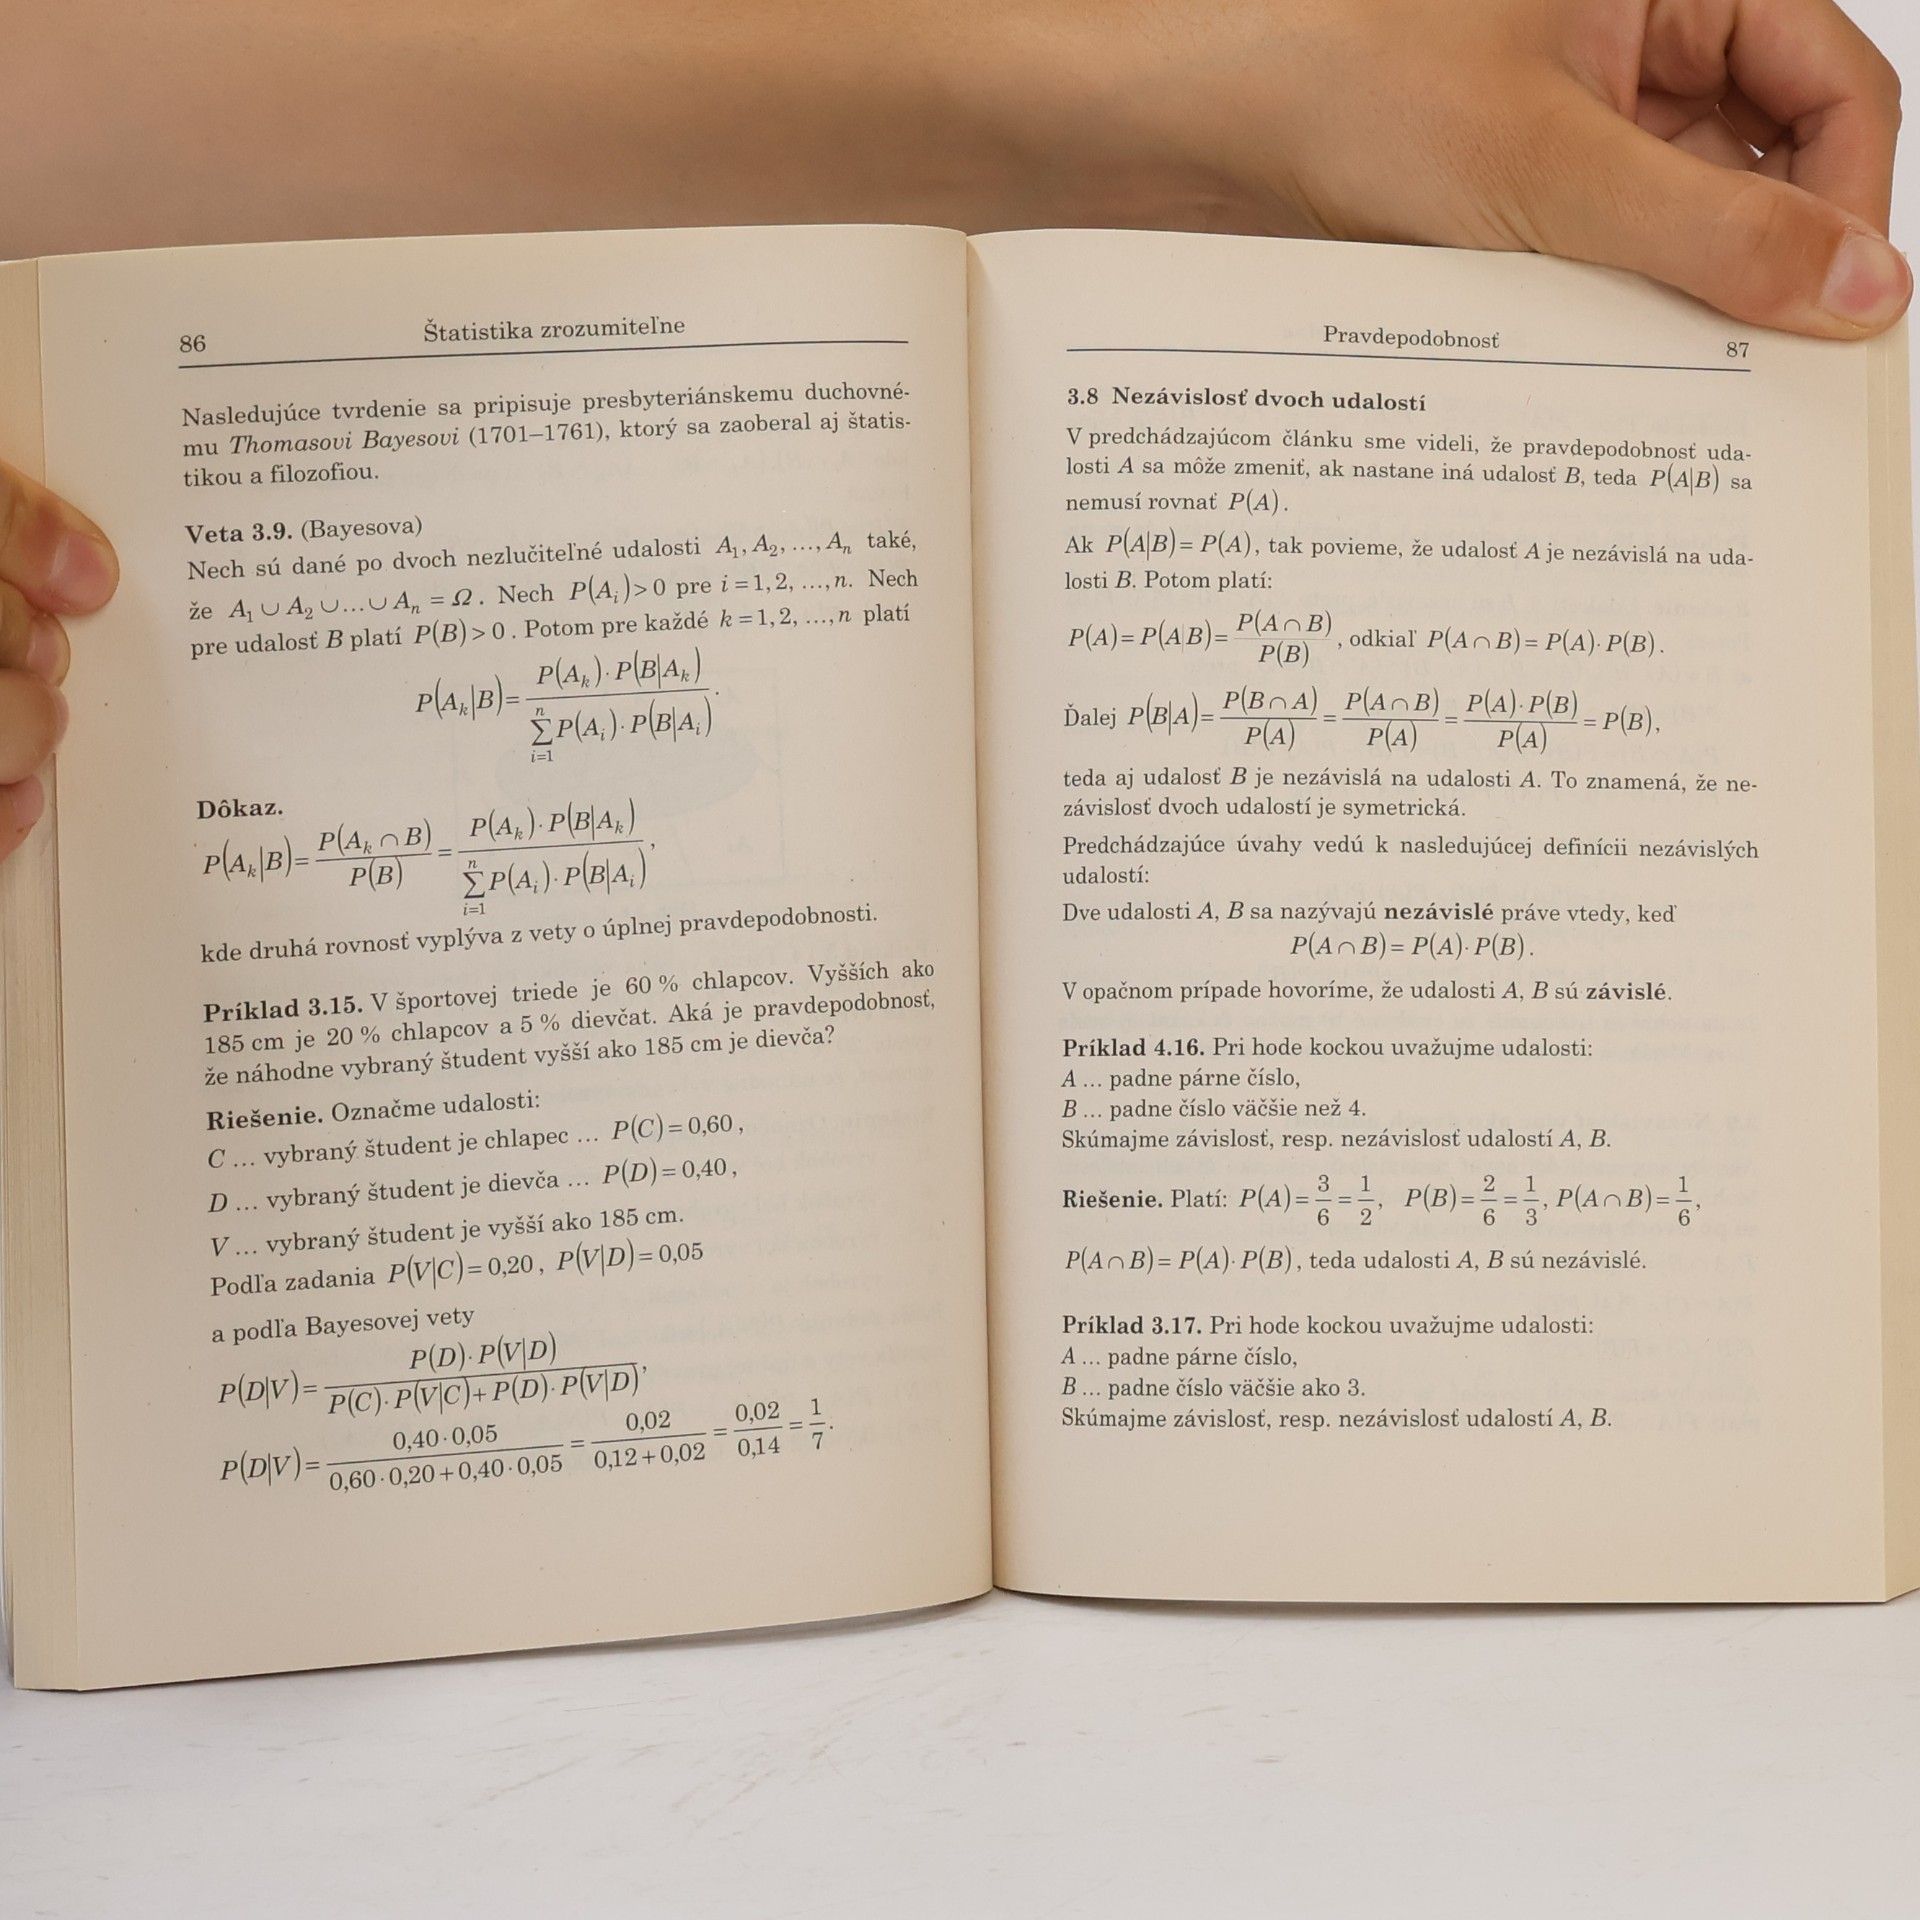 86
Štatistika zrozumiteľne
Nasledujúce tvrdenie sa pripisuje presbyteriánskemu duchovné-
mu Thomasovi Bayesovi (1701–1761), ktorý sa zaoberal aj štatis-
tikou a filozofiou.
Veta 3.9. (Bayesova)
Nech sú dané po dvoch nezlučiteľné udalosti A₁, A₂, ..., Aₙ také,
že A₁ ∪ A₂ ∪ ... ∪ Aₙ = Ω. Nech P(Aᵢ) > 0 pre i = 1, 2, ..., n. Nech
pre udalosť B platí P(B) > 0. Potom pre každé k = 1, 2, ..., n platí
P(Aₖ|B) = P(Aₖ)·P(B|Aₖ) / ∑ᵢ₌₁ⁿ P(Aᵢ)·P(B|Aᵢ).
Dôkaz.
P(Aₖ|B) = P(Aₖ ∩ B) / P(B) = P(Aₖ)·P(B|Aₖ) / ∑ᵢ₌₁ⁿ P(Aᵢ)·P(B|Aᵢ),
kde druhá rovnosť vyplýva z vety o úplnej pravdepodobnosti.
Príklad 3.15. V športovej triede je 60 % chlapcov. Vyšších ako
185 cm je 20 % chlapcov a 5 % dievčat. Aká je pravdepodobnosť,
že náhodne vybraný študent vyšší ako 185 cm je dievča?
Riešenie. Označme udalosti:
C ... vybraný študent je chlapec ... P(C) = 0,60,
D ... vybraný študent je dievča ... P(D) = 0,40,
V ... vybraný študent je vyšší ako 185 cm.
Podľa zadania P(V|C) = 0,20, P(V|D) = 0,05
a podľa Bayesovej vety
P(D|V) = P(D)·P(V|D) / P(C)·P(V|C) + P(D)·P(V|D),
P(D|V) = 0,40·0,05 / 0,60·0,20 + 0,40·0,05 = 0,02 / 0,12 + 0,02 = 0,02 / 0,14 = 1/7.
Pravdepodobnosť
87
3.8 Nezávislosť dvoch udalostí
V predchádzajúcom článku sme videli, že pravdepodobnosť uda-
losti A sa môže zmeniť, ak nastane iná udalosť B, teda P(A|B) sa
nemusí rovnať P(A).
Ak P(A|B) = P(A), tak povieme, že udalosť A je nezávislá na uda-
losti B. Potom platí:
P(A) = P(A|B) = P(A ∩ B) / P(B), odkiaľ P(A ∩ B) = P(A)·P(B).
Ďalej P(B|A) = P(B ∩ A) / P(A) = P(A ∩ B) / P(A) = P(A)·P(B) / P(A) = P(B),
teda aj udalosť B je nezávislá na udalosti A. To znamená, že ne-
závislosť dvoch udalostí je symetrická.
Predchádzajúce úvahy vedú k nasledujúcej definícii nezávislých
udalostí:
Dve udalosti A, B sa nazývajú nezávislé práve vtedy, keď
P(A ∩ B) = P(A)·P(B).
V opačnom prípade hovoríme, že udalosti A, B sú závislé.
Príklad 4.16. Pri hode kockou uvažujme udalosti:
A ... padne párne číslo,
B ... padne číslo väčšie než 4.
Skúmajme závislosť, resp. nezávislosť udalostí A, B.
Riešenie. Platí: P(A) = 3/6 = 1/2, P(B) = 2/6 = 1/3, P(A ∩ B) = 1/6,
P(A ∩ B) = P(A)·P(B), teda udalosti A, B sú nezávislé.
Príklad 3.17. Pri hode kockou uvažujme udalosti:
A ... padne párne číslo,
B ... padne číslo väčšie ako 3.
Skúmajme závislosť, resp. nezávislosť udalostí A, B.